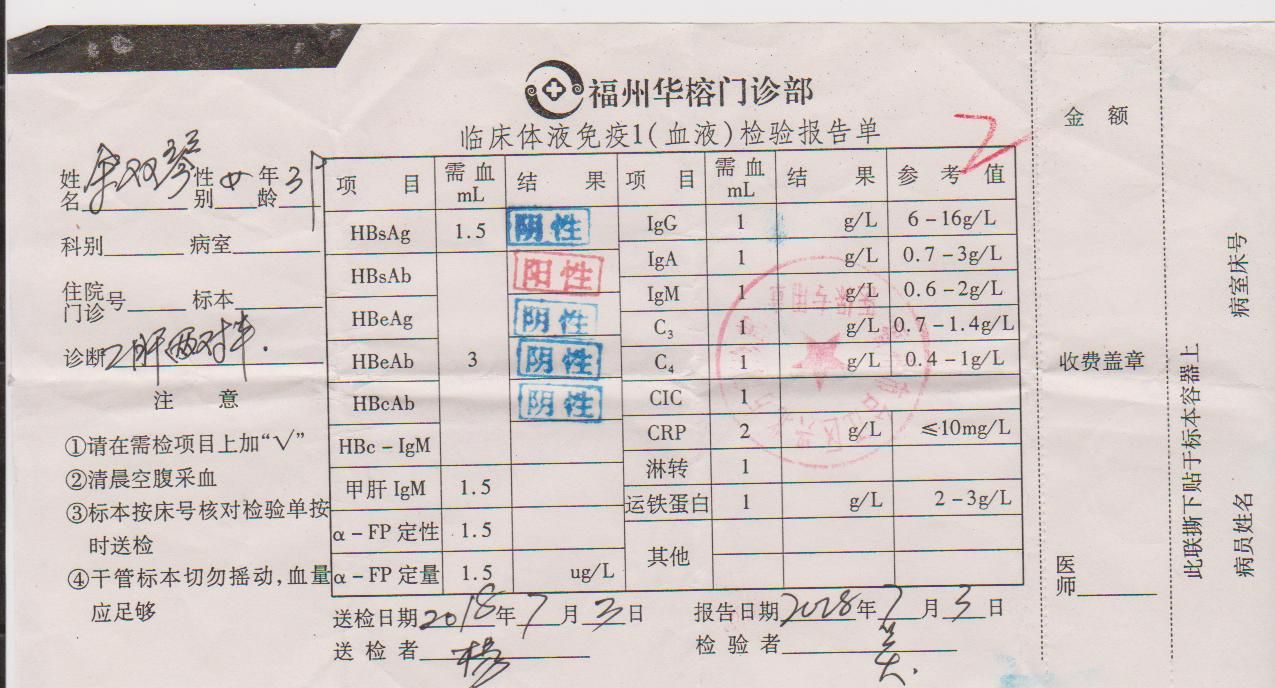 福州华榕门诊部
临床体液免疫1(血液)检验报告单
姓名 宋双琴 性别 女 年龄 31
科别 病室
住院门诊号 标本
诊断 乙肝两对半.
注 意
①请在需检项目上加“√”
②清晨空腹采血
③标本按床号核对检验单按
时送检
④干管标本切勿摇动,血量
应足够
项 目 需血 mL 结 果 项 目 需血 mL 结 果 参 考 值
HBsAg 1.5 阴性 IgG 1 g/L 6-16g/L
HBsAb 阳性 IgA 1 g/L 0.7-3g/L
HBeAg 阴性 IgM 1 g/L 0.6-2g/L
HBeAb 3 阴性 C₃ 1 g/L 0.7-1.4g/L
HBcAb 阴性 C₄ 1 g/L 0.4-1g/L
HBc-IgM CIC 1
甲肝 IgM 1.5 CRP 2 g/L ≤10mg/L
α-FP 定性 1.5 淋转 1
α-FP 定量 1.5 ug/L 运铁蛋白 1 g/L 2-3g/L
其他
送检日期 2018 年 7 月 3 日 报告日期 2028 年 7 月 3 日
送 检 者 杨 检 验 者
金 额
收费盖章
医师
此联撕下贴于标本容器上
病室床号
病员姓名